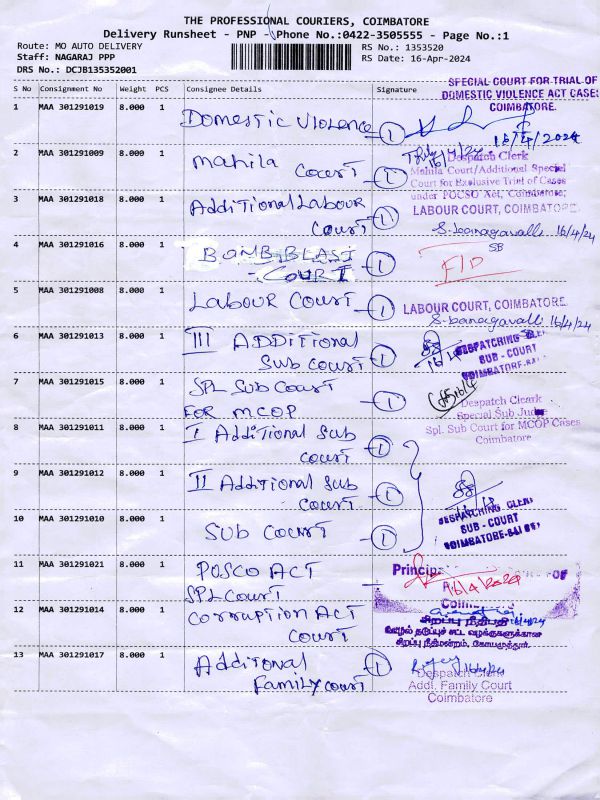 THE PROFESSIONAL COURIERS, COIMBATORE
Delivery Runsheet - PNP - Phone No.:0422-3505555 - Page No.:1
Route: MO AUTO DELIVERY
RS No.: 1353520
Staff: NAGARAJ PPP
RS Date: 16-Apr-2024
DRS No.: DCJB135352001
S No Consignment No Weight PCS Consignee Details Signature
SPECIAL COURT FOR TRIAL OF
DOMESTIC VIOLENCE ACT CASES
COIMBATORE.
1 MAA 301291019 8.000 1 Domestic Violence 1
16/4/2024
2 MAA 301291009 8.000 1 Mahila Court 1
16/4/24
Despatch Clerk
Mahila Court/Additional Special
Court for Exclusive Trial of Cases
under POCSO Act, Coimbatore.
3 MAA 301291018 8.000 1 Additional Labour
Court 1
LABOUR COURT, COIMBATORE.
16/4/24
4 MAA 301291016 8.000 1 BOMB BLAST
COURT 1
SB
5 MAA 301291008 8.000 1 Labour Court 1
LABOUR COURT, COIMBATORE.
16/4/24
6 MAA 301291013 8.000 1 III ADDITIONAL
Sub Court 1
DESPATCHING CLER
SUB - COURT
COIMBATORE
7 MAA 301291015 8.000 1 SPL SUB COURT
FOR MCOP 1
Despatch Clerk
Special Sub Judge
Spl. Sub Court for MCOP Cases
Coimbatore
8 MAA 301291011 8.000 1 I Additional Sub
Court 1
9 MAA 301291012 8.000 1 II Additional Sub
Court 1
10 MAA 301291010 8.000 1 SUB COURT 1
DESPATCHING CLER
SUB - COURT
COIMBATORE
11 MAA 301291021 8.000 1 POSCO ACT
SPL COURT 1
Princip
16/4/2024
12 MAA 301291014 8.000 1 Corruption ACT
Court 1
சிறப்பு நீதிபதி
ஊழல் தடுப்புச் சட்ட வழக்குகளுக்கான
சிறப்பு நீதிமன்றம், கோயமுத்தூர்.
13 MAA 301291017 8.000 1 Additonal
Family Court 1
16/4/24
Despatch Clerk
Addl. Family Court
Coimbatore